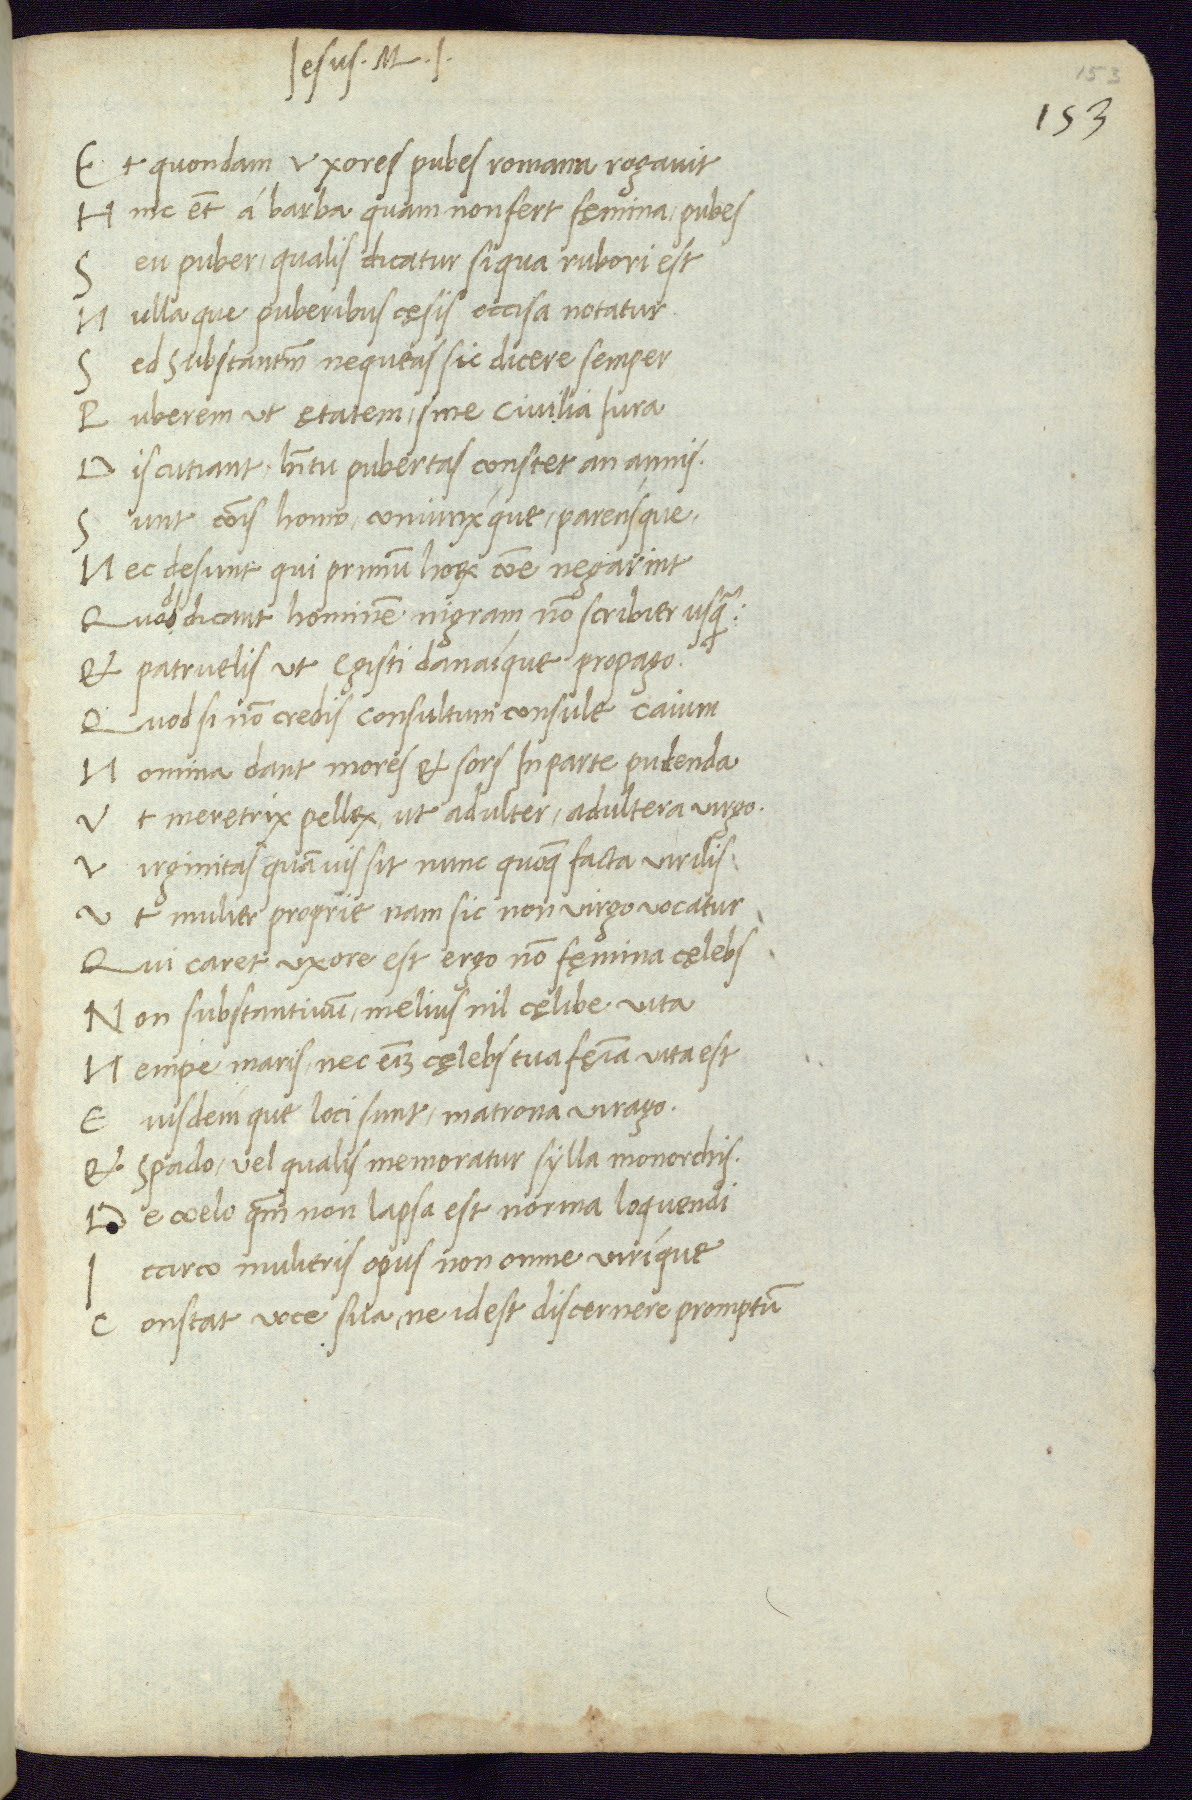 Iesus. M. I.
153
153
Et quondam uxores pubes romana rogavit
Hinc et̄ á barba quam non fert fęmina, pubes
Seu puber, qualis dicatur siqua rubori est
Nullaque puberibus cęsis occisa notatur
Sed substantm̄ nequeas sic dicere semper
Puberem ut ętatem, sine civilia Iura
Discutiant, pubertas constet an annis.
Sunt cōis homo, coniunxque, parensque,
Nec desunt qui primū cōe negarint
Quod dicant hominē nigram nō scribier
& patruelis ut Egisti danaique propago.
Quod si nō credis consultum consule Caium
Nomina dant mores & sors In parte pudenda
Ut meretrix pellex, ut adulter, adultera virgo.
Virginitas quāvis sit nunc quoq facta virilis.
Ut mulier proprie nam sic non virgo vocatur
Qui caret uxore est ergo nō fęmina cęlebs
Non substantivū, melius nil cęlibe vita
Nempe maris, nec cęlebs tua fęīa vita est
Eiusdemque loci sunt, matrona virago.
& spado, vel qualis memoratur sylla monorchis.
De coelo qm̄ non lapsa est norma loquendi
Iccirco mulieris opus non omne virique
Constat voce sua, ne id est discernere promptū